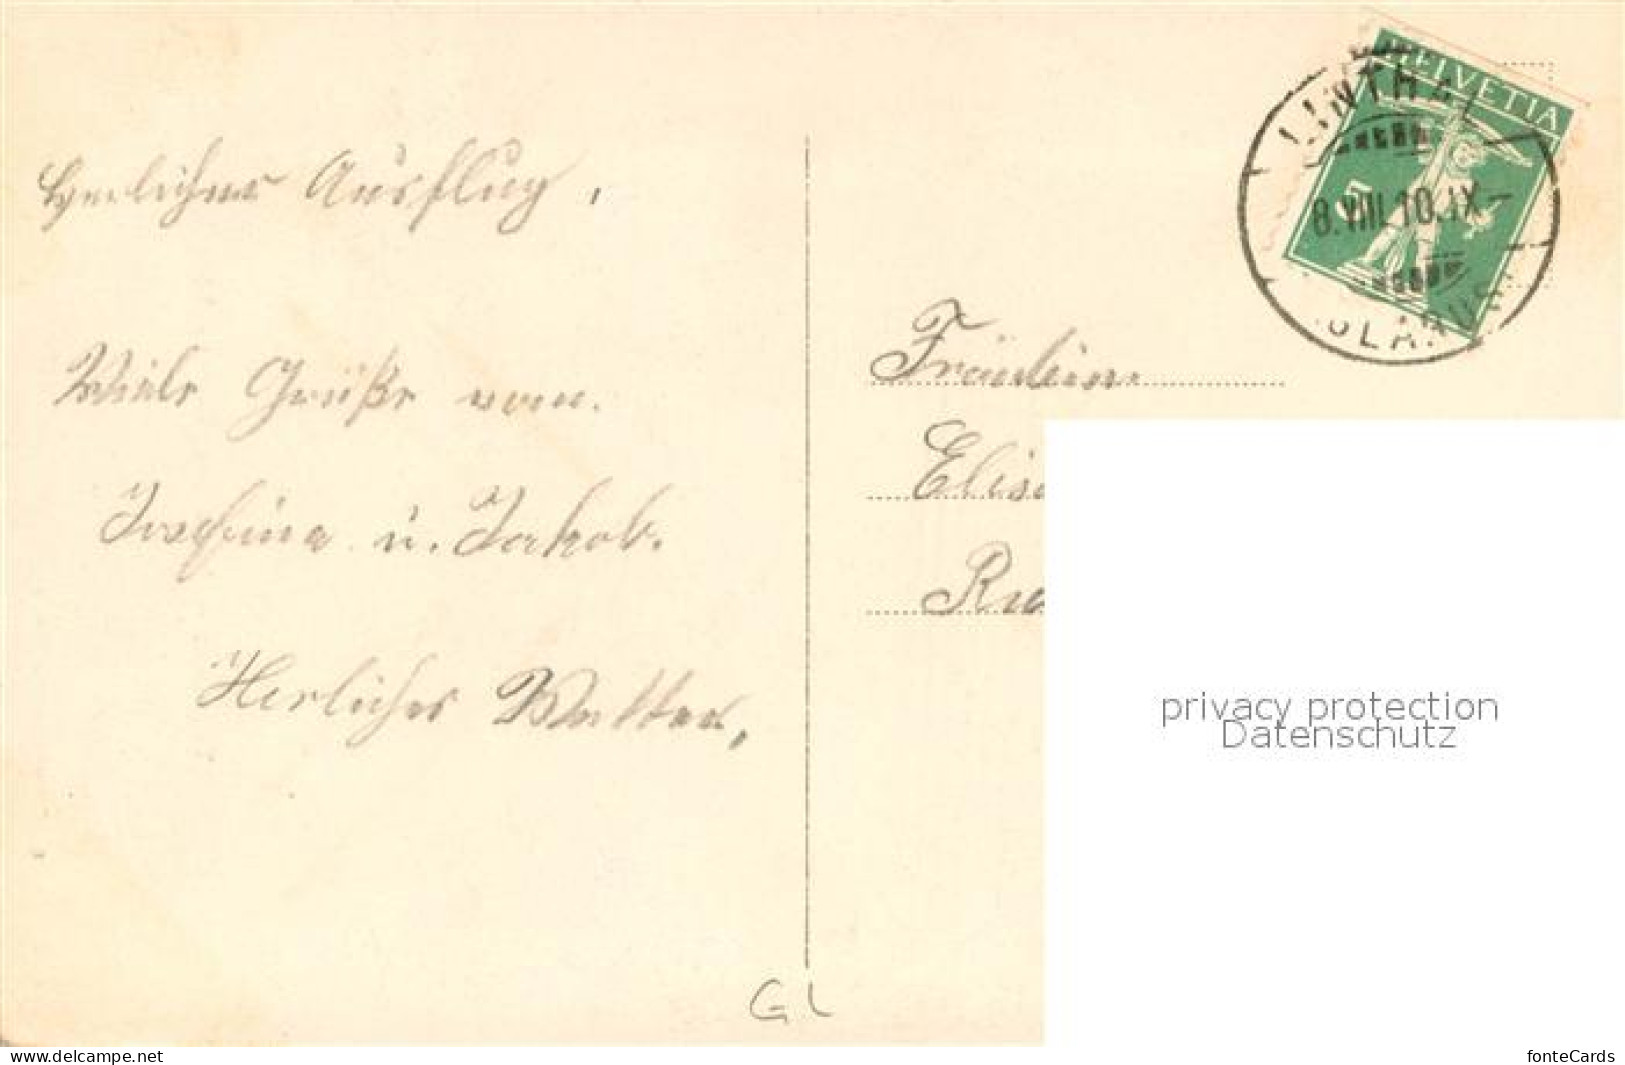 HELVETIA
5
LINTHAL
8.VIII.10.IX-
(GLARUS)
Herlicher Ausflug,
Viele Grüße von.
Josefina u. Jakob.
Herliches Wetter,
Fräulein
privacy protection
Datenschutz
GL
www.delcampe.net
fonteCards